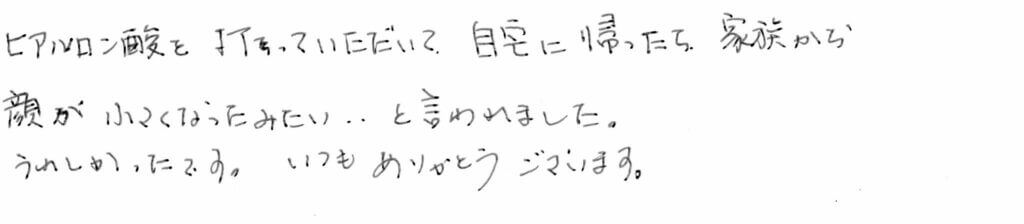 ヒアルロン酸を打っていただいて、自宅に帰ったら、家族から
顔が小さくなったみたい‥と言われました。
うれしかったです。いつもありがとうございます。